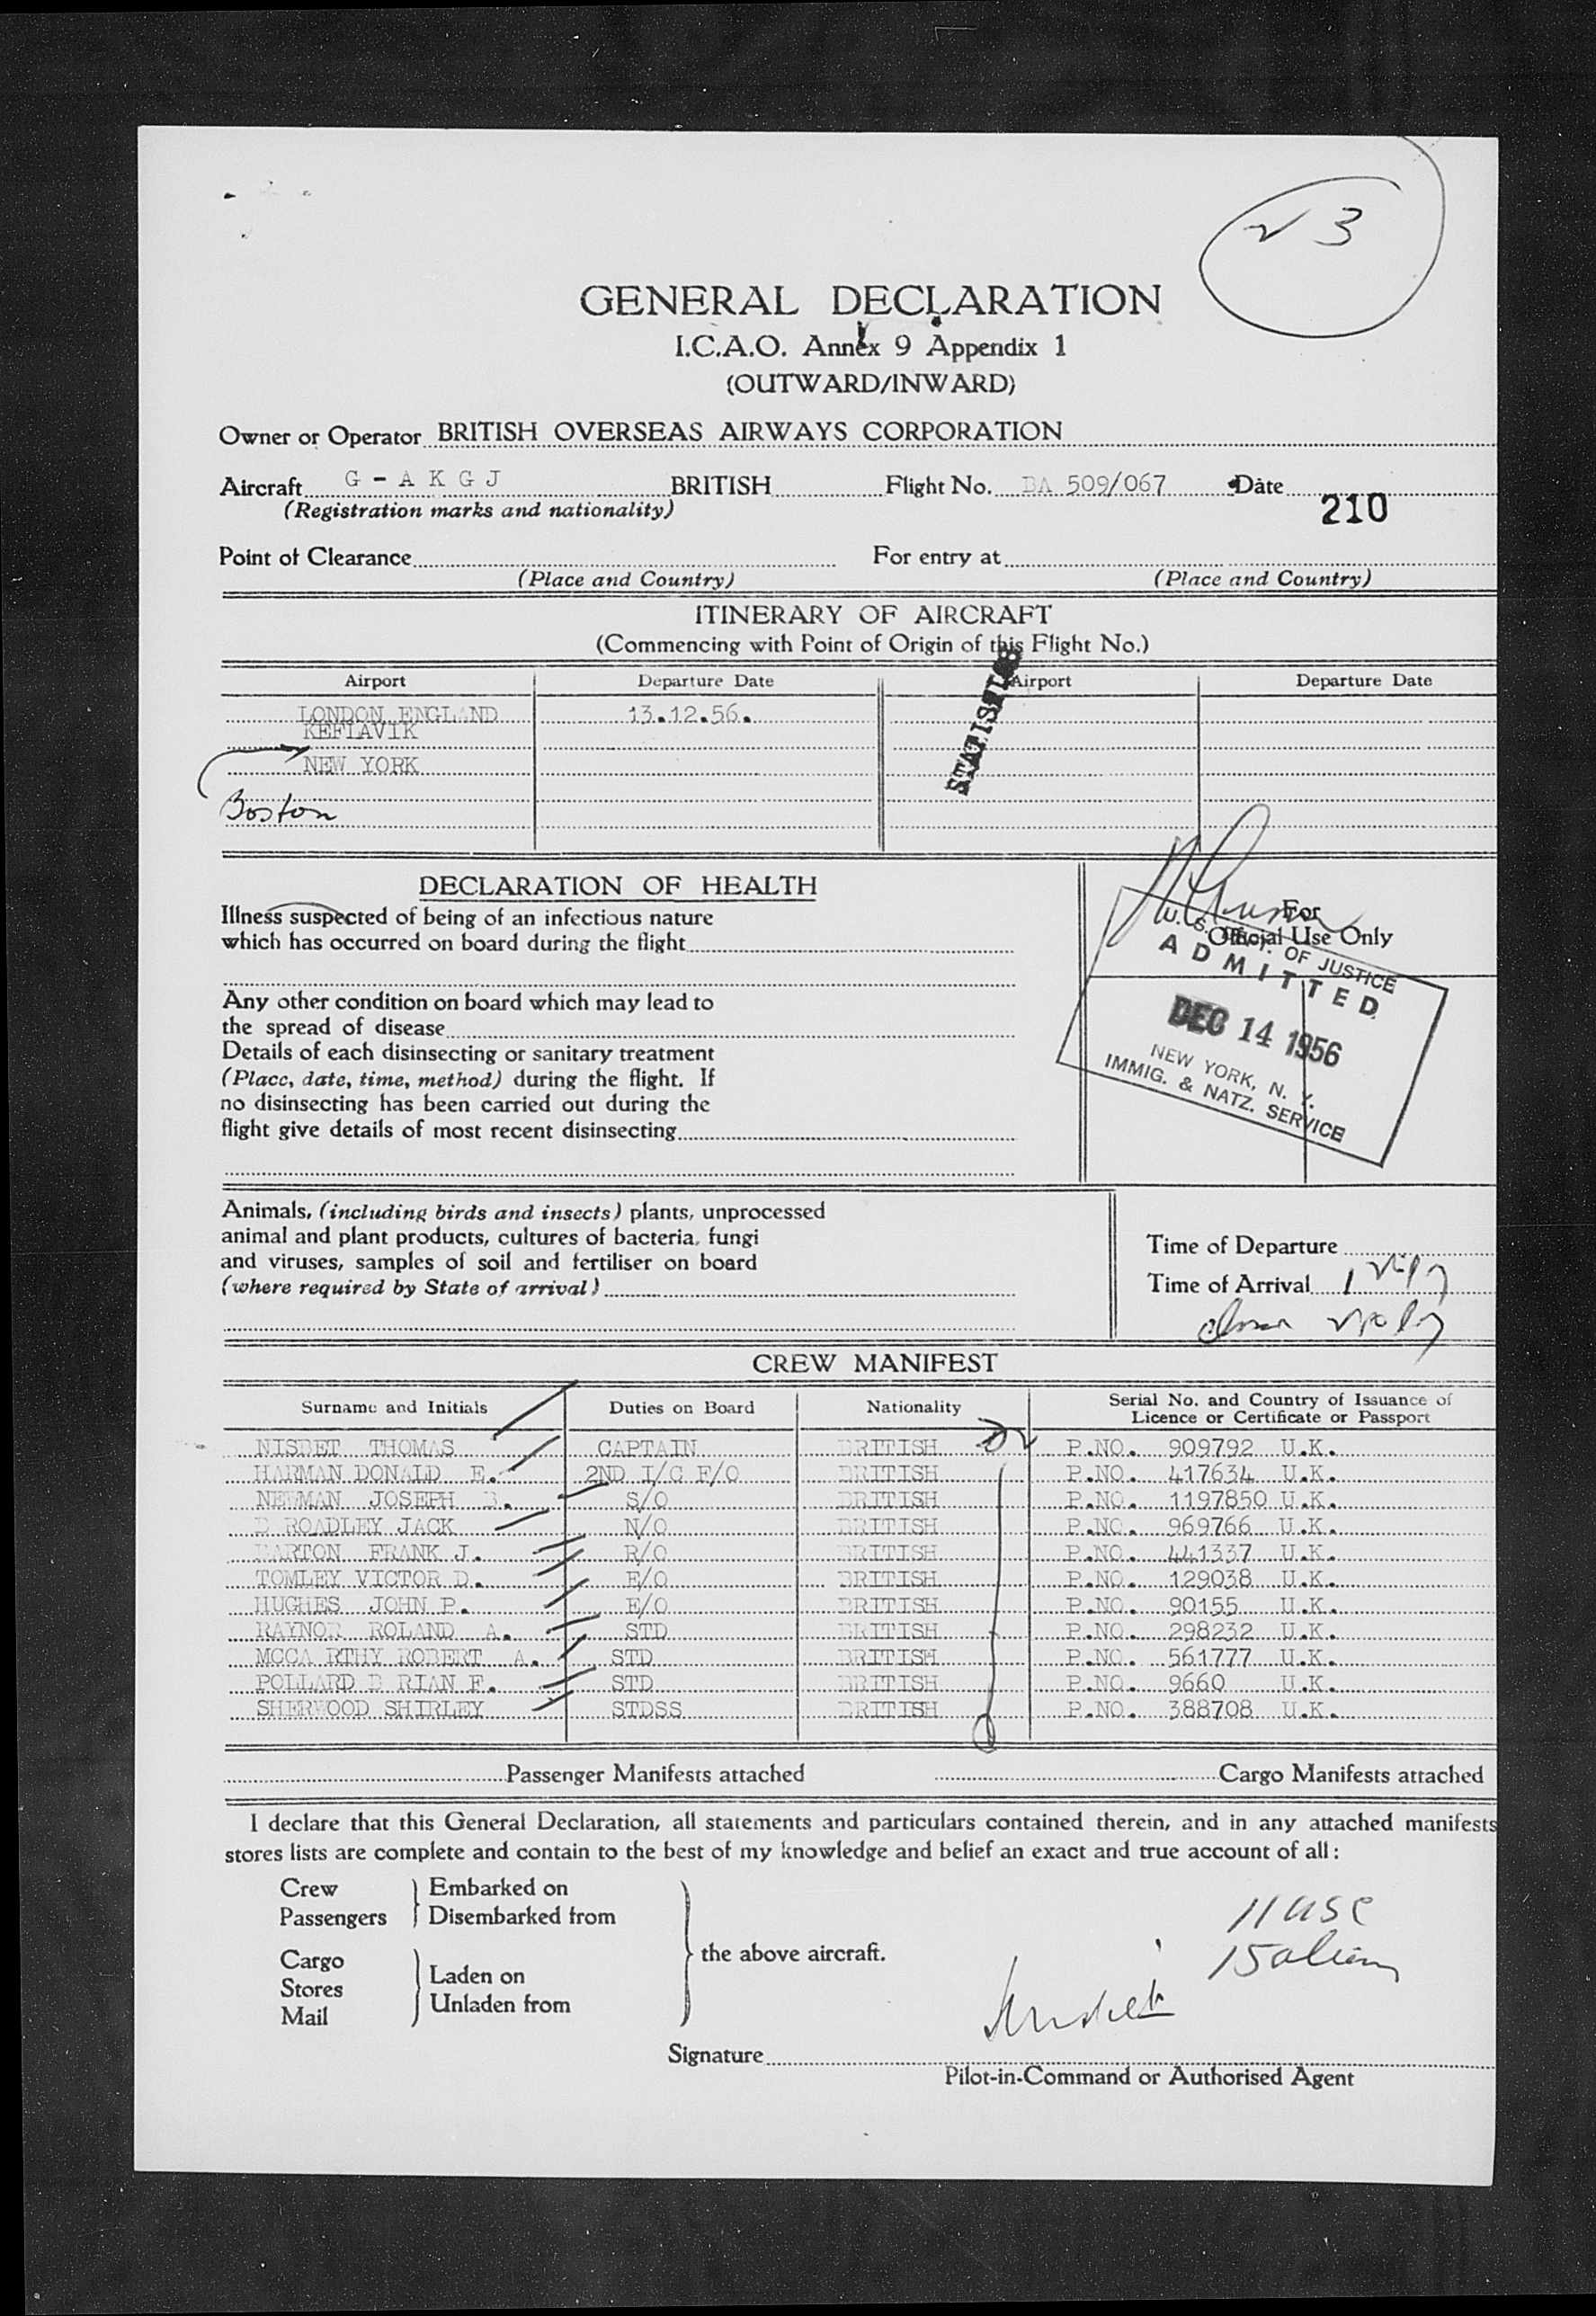 3
GENERAL DECLARATION
I.C.A.O. Annex 9 Appendix 1
(OUTWARD/INWARD)
Owner or Operator BRITISH OVERSEAS AIRWAYS CORPORATION
Aircraft G - A K G J BRITISH Flight No. BA 509/067 Date
(Registration marks and nationality)
210
Point of Clearance For entry at
(Place and Country) (Place and Country)
ITINERARY OF AIRCRAFT
(Commencing with Point of Origin of this Flight No.)
Airport Departure Date Airport Departure Date
STATISTICS
LONDON ENGLAND 13.12.56.
KEFLAVIK
NEW YORK
Boston
DECLARATION OF HEALTH
Illness suspected of being of an infectious nature
which has occurred on board during the flight
Any other condition on board which may lead to
the spread of disease
Details of each disinsecting or sanitary treatment
(Place, date, time, method) during the flight. If
no disinsecting has been carried out during the
flight give details of most recent disinsecting
For
Official Use Only
U. S. DEPT. OF JUSTICE
ADMITTED
DEC 14 1956
NEW YORK, N. Y.
IMMIG. & NATZ. SERVICE
Animals, (including birds and insects) plants, unprocessed
animal and plant products, cultures of bacteria, fungi
and viruses, samples of soil and fertiliser on board
(where required by State of arrival)
Time of Departure
Time of Arrival
CREW MANIFEST
Surname and Initials Duties on Board Nationality Serial No. and Country of Issuance of
Licence or Certificate or Passport
NISBET THOMAS CAPTAIN BRITISH P.NO. 909792 U.K.
HARMAN DONALD E. 2ND I/C F/O BRITISH P.NO. 417634 U.K.
NEWMAN JOSEPH B. S/O BRITISH P.NO. 1197850 U.K.
B ROADLEY JACK N/O BRITISH P.NO. 969766 U.K.
BARTON FRANK J. R/O BRITISH P.NO. 441337 U.K.
TOMLEY VICTOR D. E/O BRITISH P.NO. 129038 U.K.
HUGHES JOHN P. E/O BRITISH P.NO. 90155 U.K.
RAYNOR ROLAND A. STD BRITISH P.NO. 298232 U.K.
MCCA RTHY ROBERT A. STD BRITISH P.NO. 561777 U.K.
POLLARD B RIAN F. STD BRITISH P.NO. 9660 U.K.
SHERWOOD SHIRLEY STDSS BRITISH P.NO. 388708 U.K.
Passenger Manifests attached Cargo Manifests attached
I declare that this General Declaration, all statements and particulars contained therein, and in any attached manifests
stores lists are complete and contain to the best of my knowledge and belief an exact and true account of all:
Crew Embarked on
Passengers Disembarked from
the above aircraft.
Cargo Laden on
Stores Unladen from
Mail
11 USC
15 alien
Signature
Pilot-in-Command or Authorised Agent